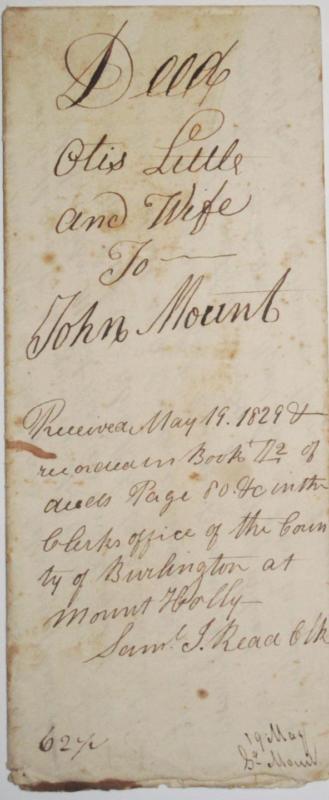 Deed
Otis Little
and Wife
To
John Mount
Received May 19. 1829 &
recorded in Book of
deeds Page 80 &c in the
Clerks office of the Coun
ty of Burlington at
Mount Holly
Saml. J. Read Clk
19 May